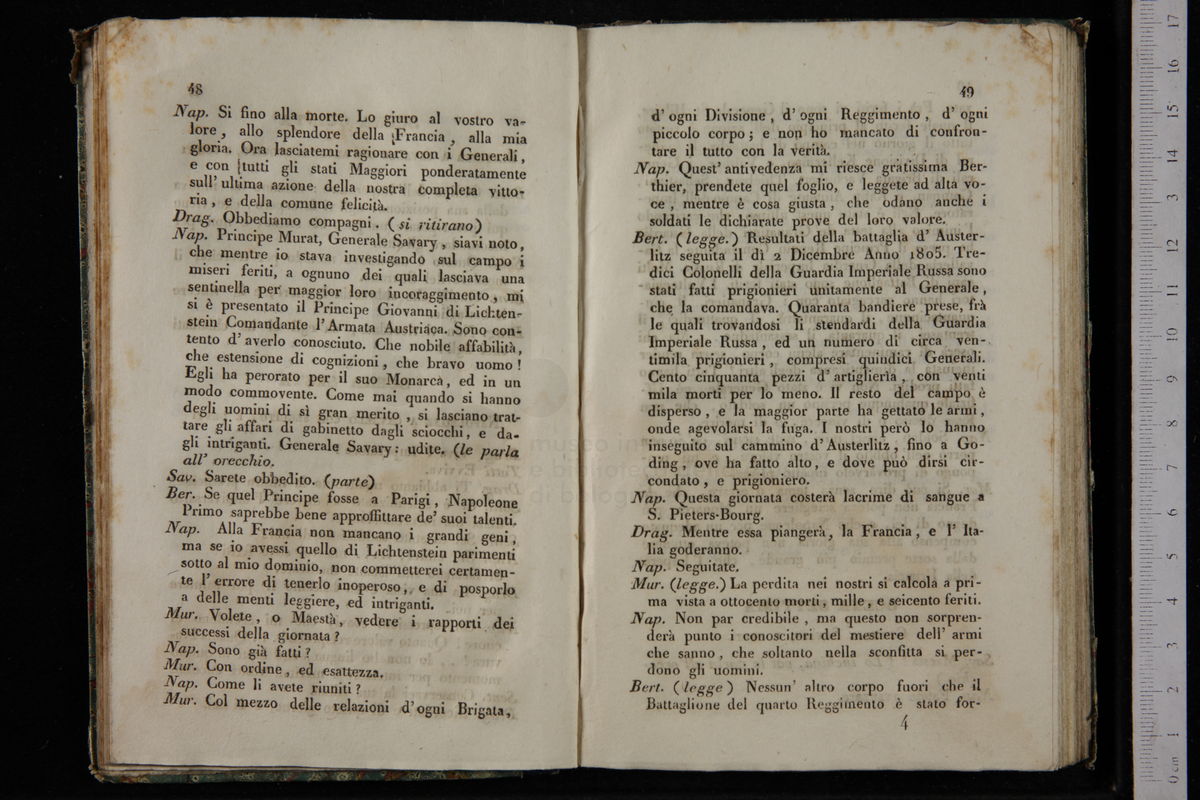 48
Nap. Si fino alla morte. Lo giuro al vostro va-
lore, allo splendore della Francia, alla mia
gloria. Ora lasciatemi ragionare con i Generali,
e con tutti gli stati Maggiori ponderatamente
sull' ultima azione della nostra completa vitto-
ria, e della comune felicità.
Drag. Obbediamo compagni. (si ritirano)
Nap. Principe Murat, Generale Savary, siavi noto,
che mentre io stava investigando sul campo i
miseri feriti, a ognuno dei quali lasciava una
sentinella per maggior loro incoraggimento, mi
si è presentato il Principe Giovanni di Lichten-
stein Comandante l'Armata Austriaca. Sono con-
tento d'averlo conosciuto. Che nobile affabilità,
che estensione di cognizioni, che bravo uomo!
Egli ha perorato per il suo Monarca, ed in un
modo commovente. Come mai quando si hanno
degli uomini di sì gran merito, si lasciano trat-
tare gli affari di gabinetto dagli sciocchi, e da-
gli intriganti. Generale Savary: udite. (le parla
all' orecchio.
Sav. Sarete obbedito. (parte)
Ber. Se quel Principe fosse a Parigi, Napoleone
Primo saprebbe bene approffittare de' suoi talenti.
Nap. Alla Francia non mancano i grandi geni,
ma se io avessi quello di Lichtenstein parimenti
sotto al mio dominio, non commetterei certamen-
te l'errore di tenerlo inoperoso, e di posporlo
a delle menti leggiere, ed intriganti.
Mur. Volete, o Maestà, vedere i rapporti dei
successi della giornata?
Nap. Sono già fatti?
Mur. Con ordine, ed esattezza.
Nap. Come li avete riuniti?
Mur. Col mezzo delle relazioni d'ogni Brigata,
49
d' ogni Divisione, d' ogni Reggimento, d' ogni
piccolo corpo; e non ho mancato di confron-
tare il tutto con la verità.
Nap. Quest' antivedenza mi riesce gratissima Ber-
thier, prendete quel foglio, e leggete ad alta vo-
ce, mentre è cosa giusta, che odano anche i
soldati le dichiarate prove del loro valore.
Bert. (legge.) Resultati della battaglia d' Auster-
litz seguita il dì 2 Dicembre Anno 1805. Tre-
dici Colonelli della Guardia Imperiale Russa sono
stati fatti prigionieri unitamente al Generale,
che la comandava. Quaranta bandiere prese, frà
le quali trovandosi li stendardi della Guardia
Imperiale Russa, ed un numero di circa ven-
timila prigionieri, compresi quindici Generali.
Cento cinquanta pezzi d' artiglieria, con venti
mila morti per lo meno. Il resto del campo è
disperso, e la maggior parte ha gettato le armi,
onde agevolarsi la fuga. I nostri però lo hanno
inseguito sul cammino d' Austerlitz, fino a Go-
ding, ove ha fatto alto, e dove può dirsi cir-
condato, e prigioniero.
Nap. Questa giornata costerà lacrime di sangue a
S. Pieters-Bourg.
Drag. Mentre essa piangerà, la Francia, e l' Ita-
lia goderanno.
Nap. Seguitate.
Mur. (legge.) La perdita nei nostri si calcola a pri-
ma vista a ottocento morti, mille, e seicento feriti.
Nap. Non par credibile, ma questo non sorpren-
derà punto i conoscitori del mestiere dell' armi
che sanno, che soltanto nella sconfitta si per-
dono gli uomini.
Bert. (legge) Nessun' altro corpo fuori che il
Battaglione del quarto Reggimento è stato for-
4
0 cm 1 2 3 4 5 6 7 8 9 10 11 12 13 14 15 16 17